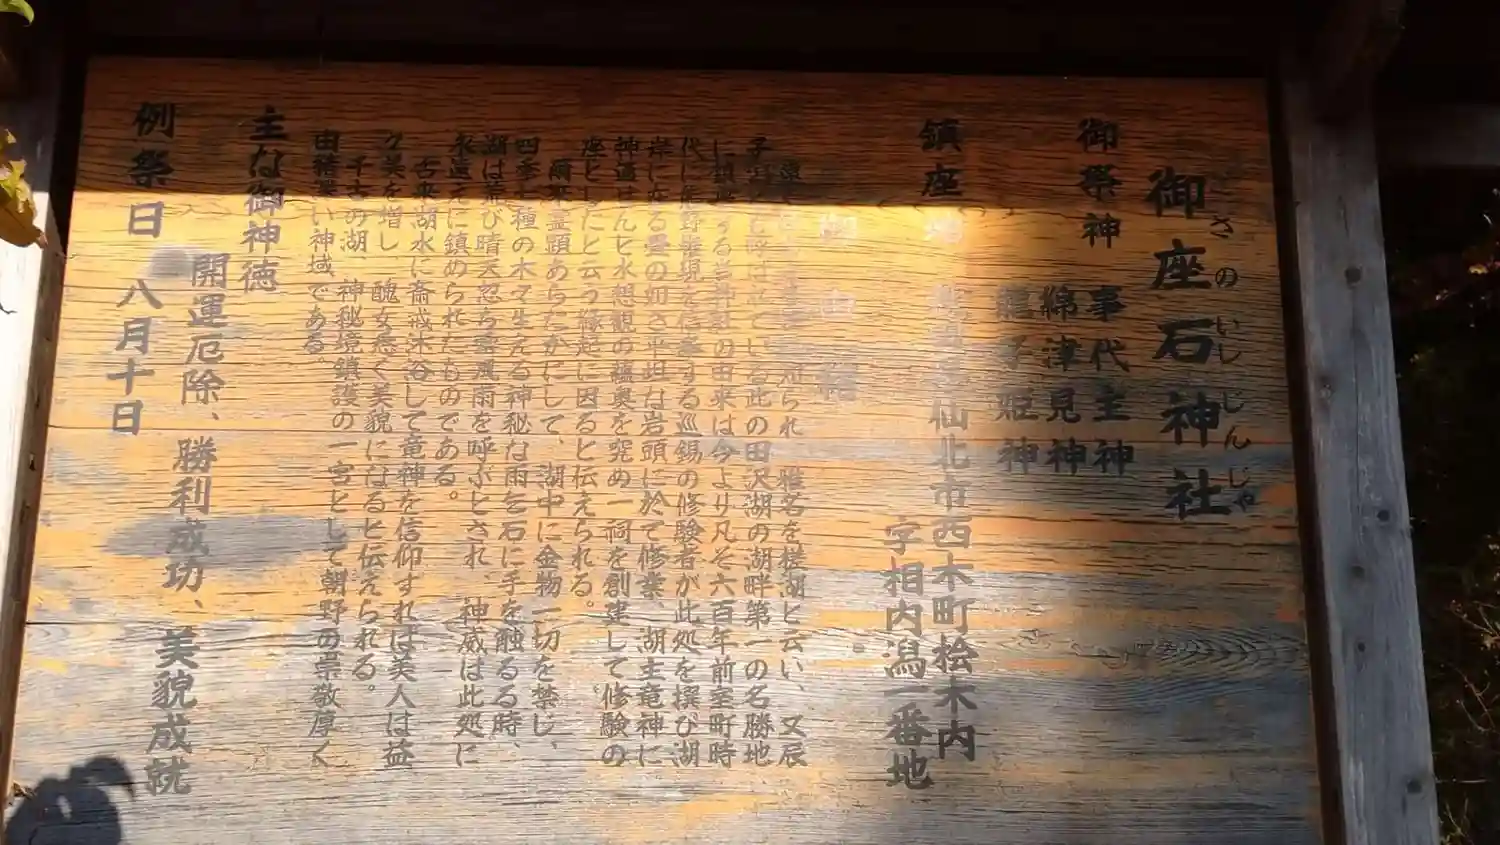 御座石神社
ござのいしじんじゃ
御祭神 事代主神
綿津見神
龍子姫神
鎮座地 仙北市西木町桧木内
字相内潟一番地
御由緒
刈られ 雅名を槎湖と云い、又辰
子 と呼ばれている此の田沢湖の湖畔第一の名勝地
に鎮座する当神社の由来は今より凡そ六百年前室町時
代に熊野権現を信奉する巡錫の修験者が此処を撰び湖
岸に在る畳の如き平坦な岩頭に於て修業、湖主竜神に
神通せんと水想観の蘊奥を究め一祠を創建して修験の
座としたと云う縁起に因ると伝えられる。
爾来霊顕あらたかにして、湖中に金物一切を禁じ、
四季七種の木々生える神秘な雨乞石に手を触るる時、
湖は荒び晴天忽ち雲風雨を呼ぶとされ 神威は此処に
永遠えに鎮められたものである。
古来湖水に斎戒沐浴して竜神を信仰すれば美人は益
々美を増し 醜女悉く美貌になると伝えられる。
千古の湖 神秘境鎖護の一宮として朝野の崇敬厚く
由緒深い神域である。
主な御神徳
開運厄除、勝利成功、美貌成就
例祭日 八月十日